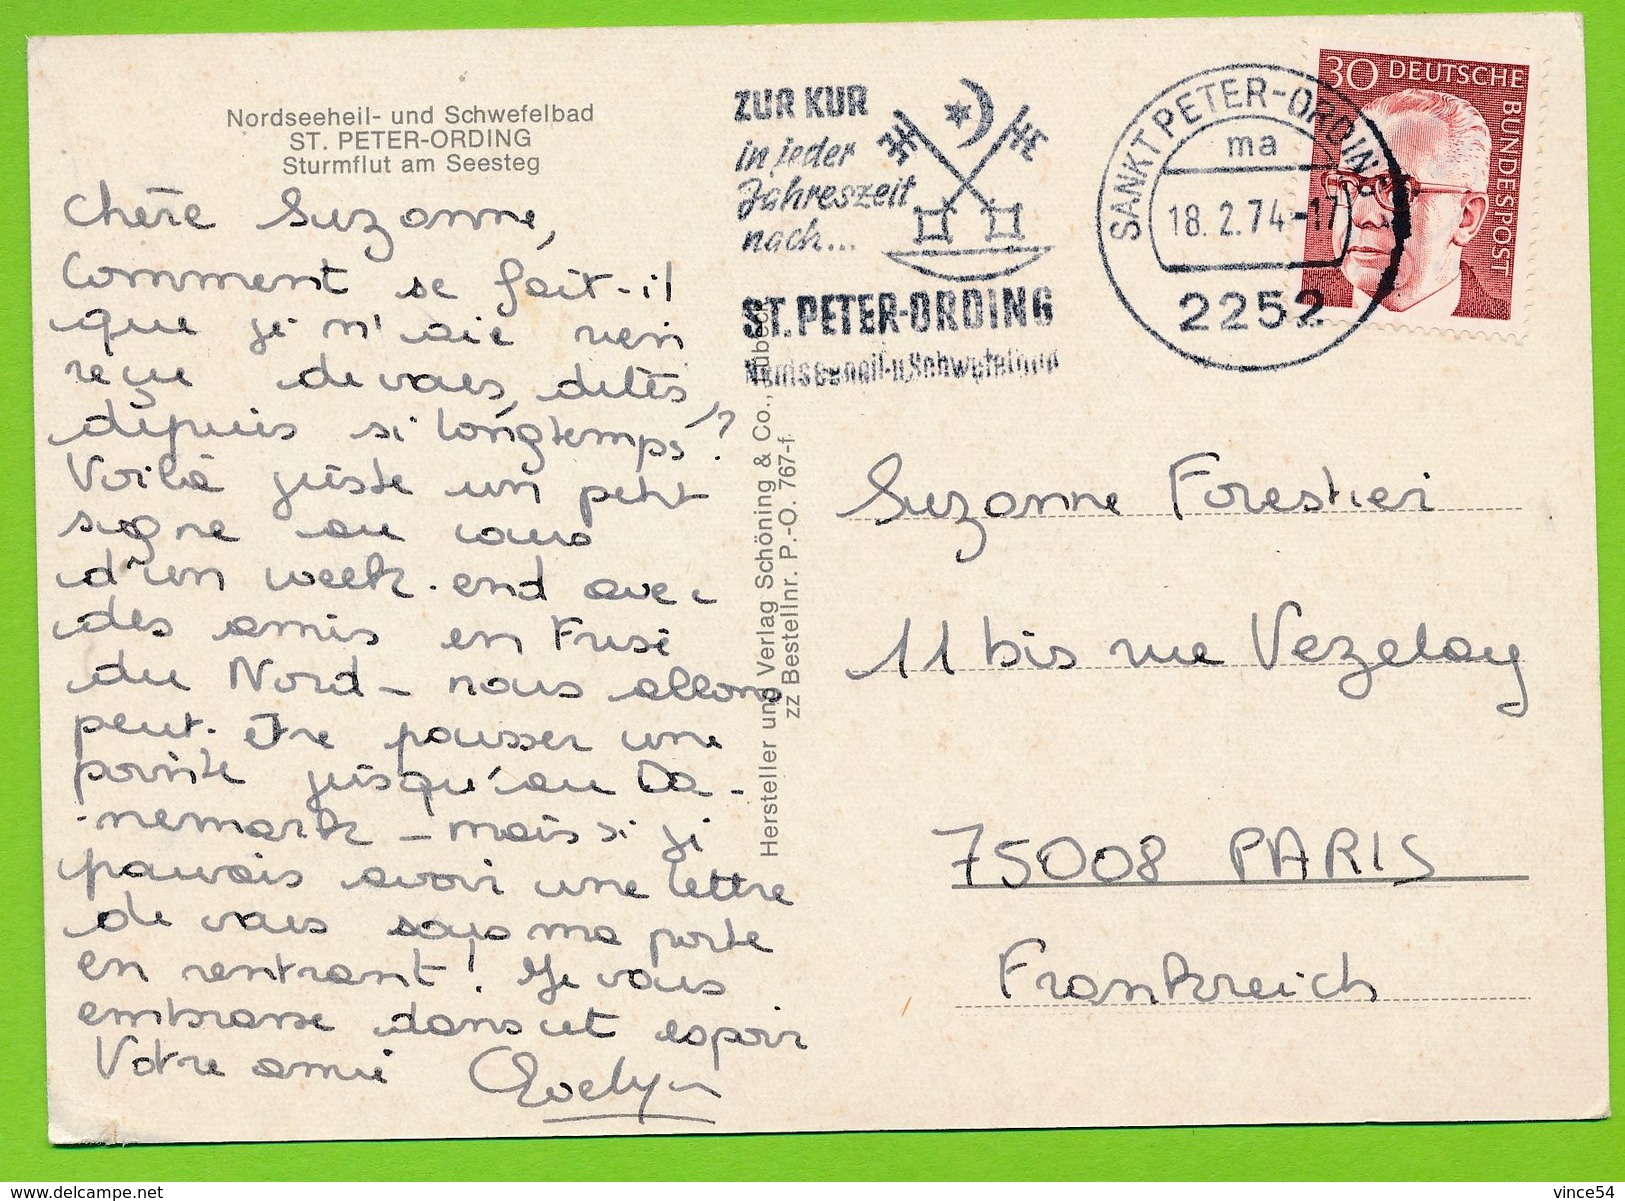 Nordseeheil- und Schwefelbad
ST. PETER-ORDING
Sturmflut am Seesteg
Chère Suzanne,
Comment se fait-il
que je n'aie rien
reçu de vous, dites,
depuis si longtemps?
Voilà juste un petit
signe au cours
d'un week-end avec
des amis en Frise
du Nord - nous allons
peut-être pousser une
pointe jusqu'au Da-
-nemark - mais si je
pouvais avoir une lettre
de vous sous ma porte
en rentrant! Je vous
embrasse dans cet espoir
Votre amie Evelyn
Hersteller und Verlag Schöning & Co., Lübeck
zz Bestellnr. P.-O. 767-f.
ZUR KUR
in jeder
Jahreszeit
nach...
ST. PETER-ORDING
Nordseeheil-u. Schwefelbad
SANKT PETER-ORDING
ma
18. 2. 74-17
2252
30 DEUTSCHE BUNDESPOST
Suzanne Forestier
11 bis rue Vezelay
75008 PARIS
Frankreich
delcampe.net
vince54